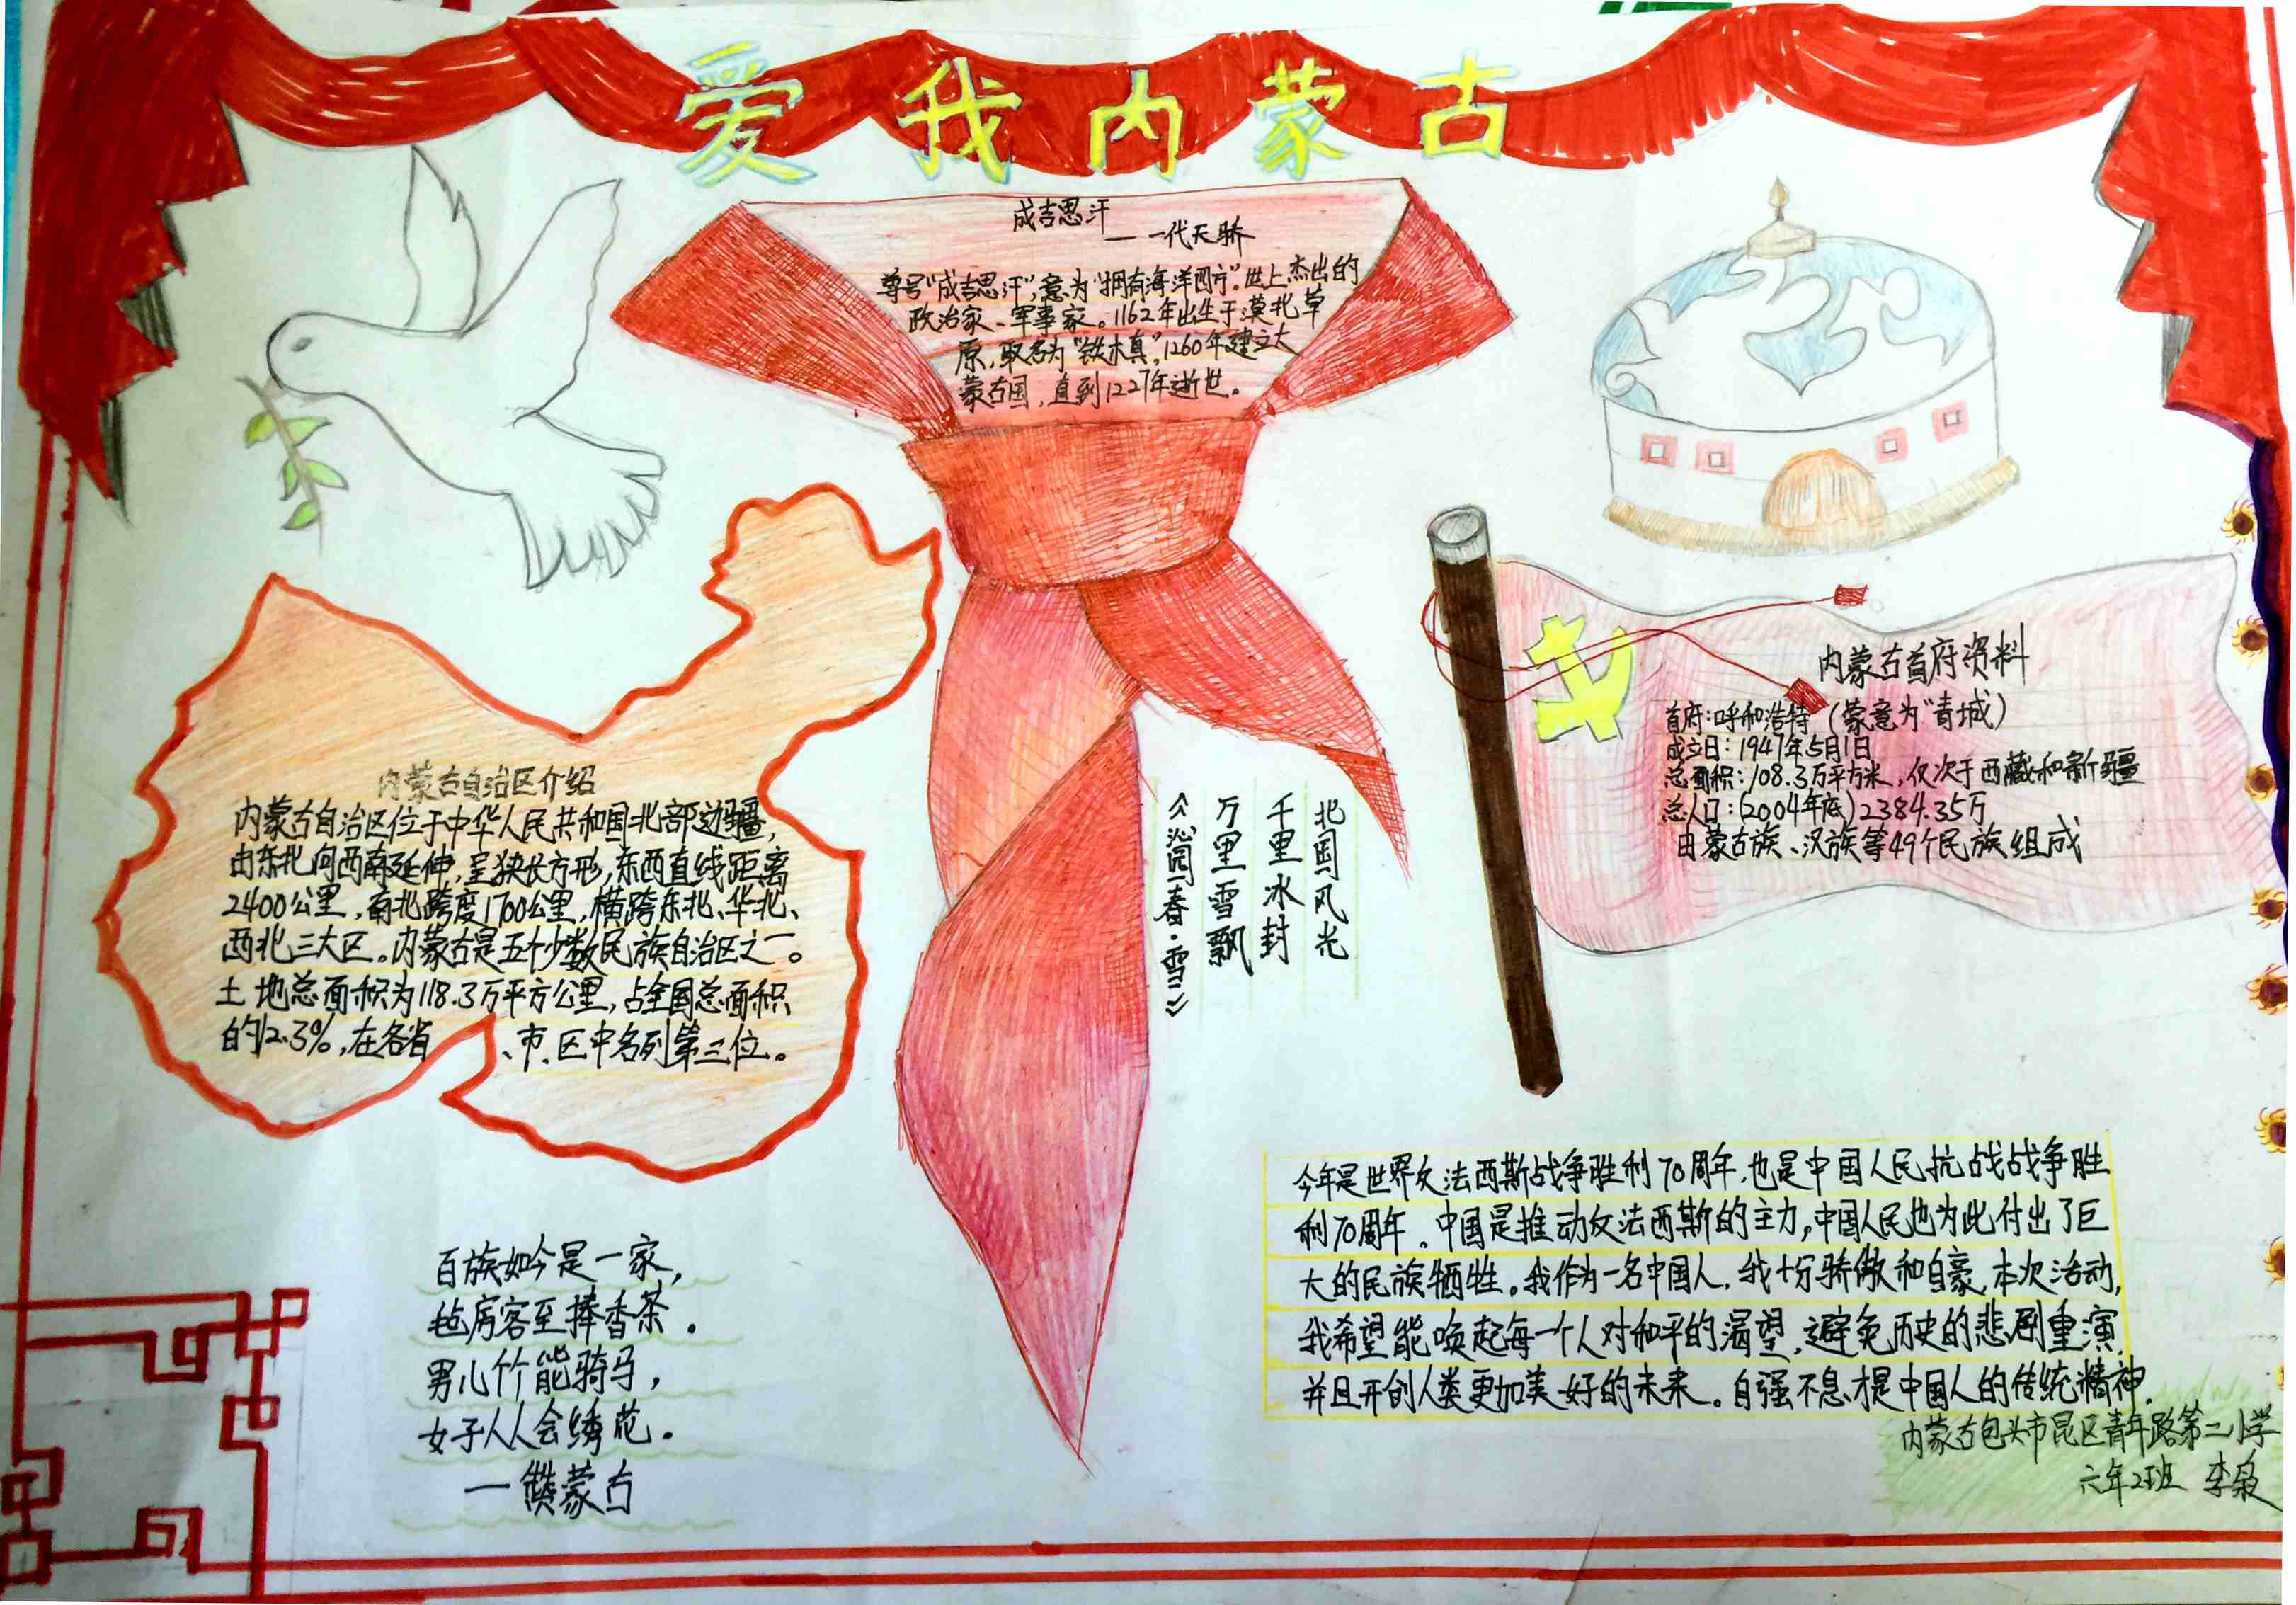 爱我内蒙古
成吉思汗
——一代天骄
尊号"成吉思汗",意为"拥有海洋四方"。世上杰出的
政治家、军事家。1162年出生于漠北草
原,取名为"铁木真",1260年建立大
蒙古国,直到1227年逝世。
内蒙古自治区介绍
内蒙古自治区位于中华人民共和国北部边疆,
由东北向西南延伸,呈狭长方形,东西直线距离
2400公里,南北跨度1700公里,横跨东北、华北、
西北三大区。内蒙古是五个少数民族自治区之一。
土地总面积为118.3万平方公里,占全国总面积
的12.3%,在各省、市、区中名列第三位。
北国风光
千里冰封
万里雪飘
《沁园春·雪》
内蒙古首府资料
首府:呼和浩特(蒙意为"青城)
成立日:1947年5月1日
总面积:108.3万平方米,仅次于西藏和新疆
总人口:(2004年底)2384.35万
由蒙古族、汉族等49个民族组成
百族如今是一家,
毡房客至捧香茶。
男儿个个能骑马,
女子人人会绣花。
一赞蒙古
今年是世界反法西斯战争胜利70周年,也是中国人民抗战战争胜
利70周年。中国是推动反法西斯的主力,中国人民也为此付出了巨
大的民族牺牲。我作为一名中国人,我十分骄傲和自豪,本次活动,
我希望能唤起每一个人对和平的渴望,避免历史的悲剧重演,
并且开创人类更加美好的未来。自强不息才是中国人的传统精神.
内蒙古包头市昆区青年路第二小学
六年2班 李泉